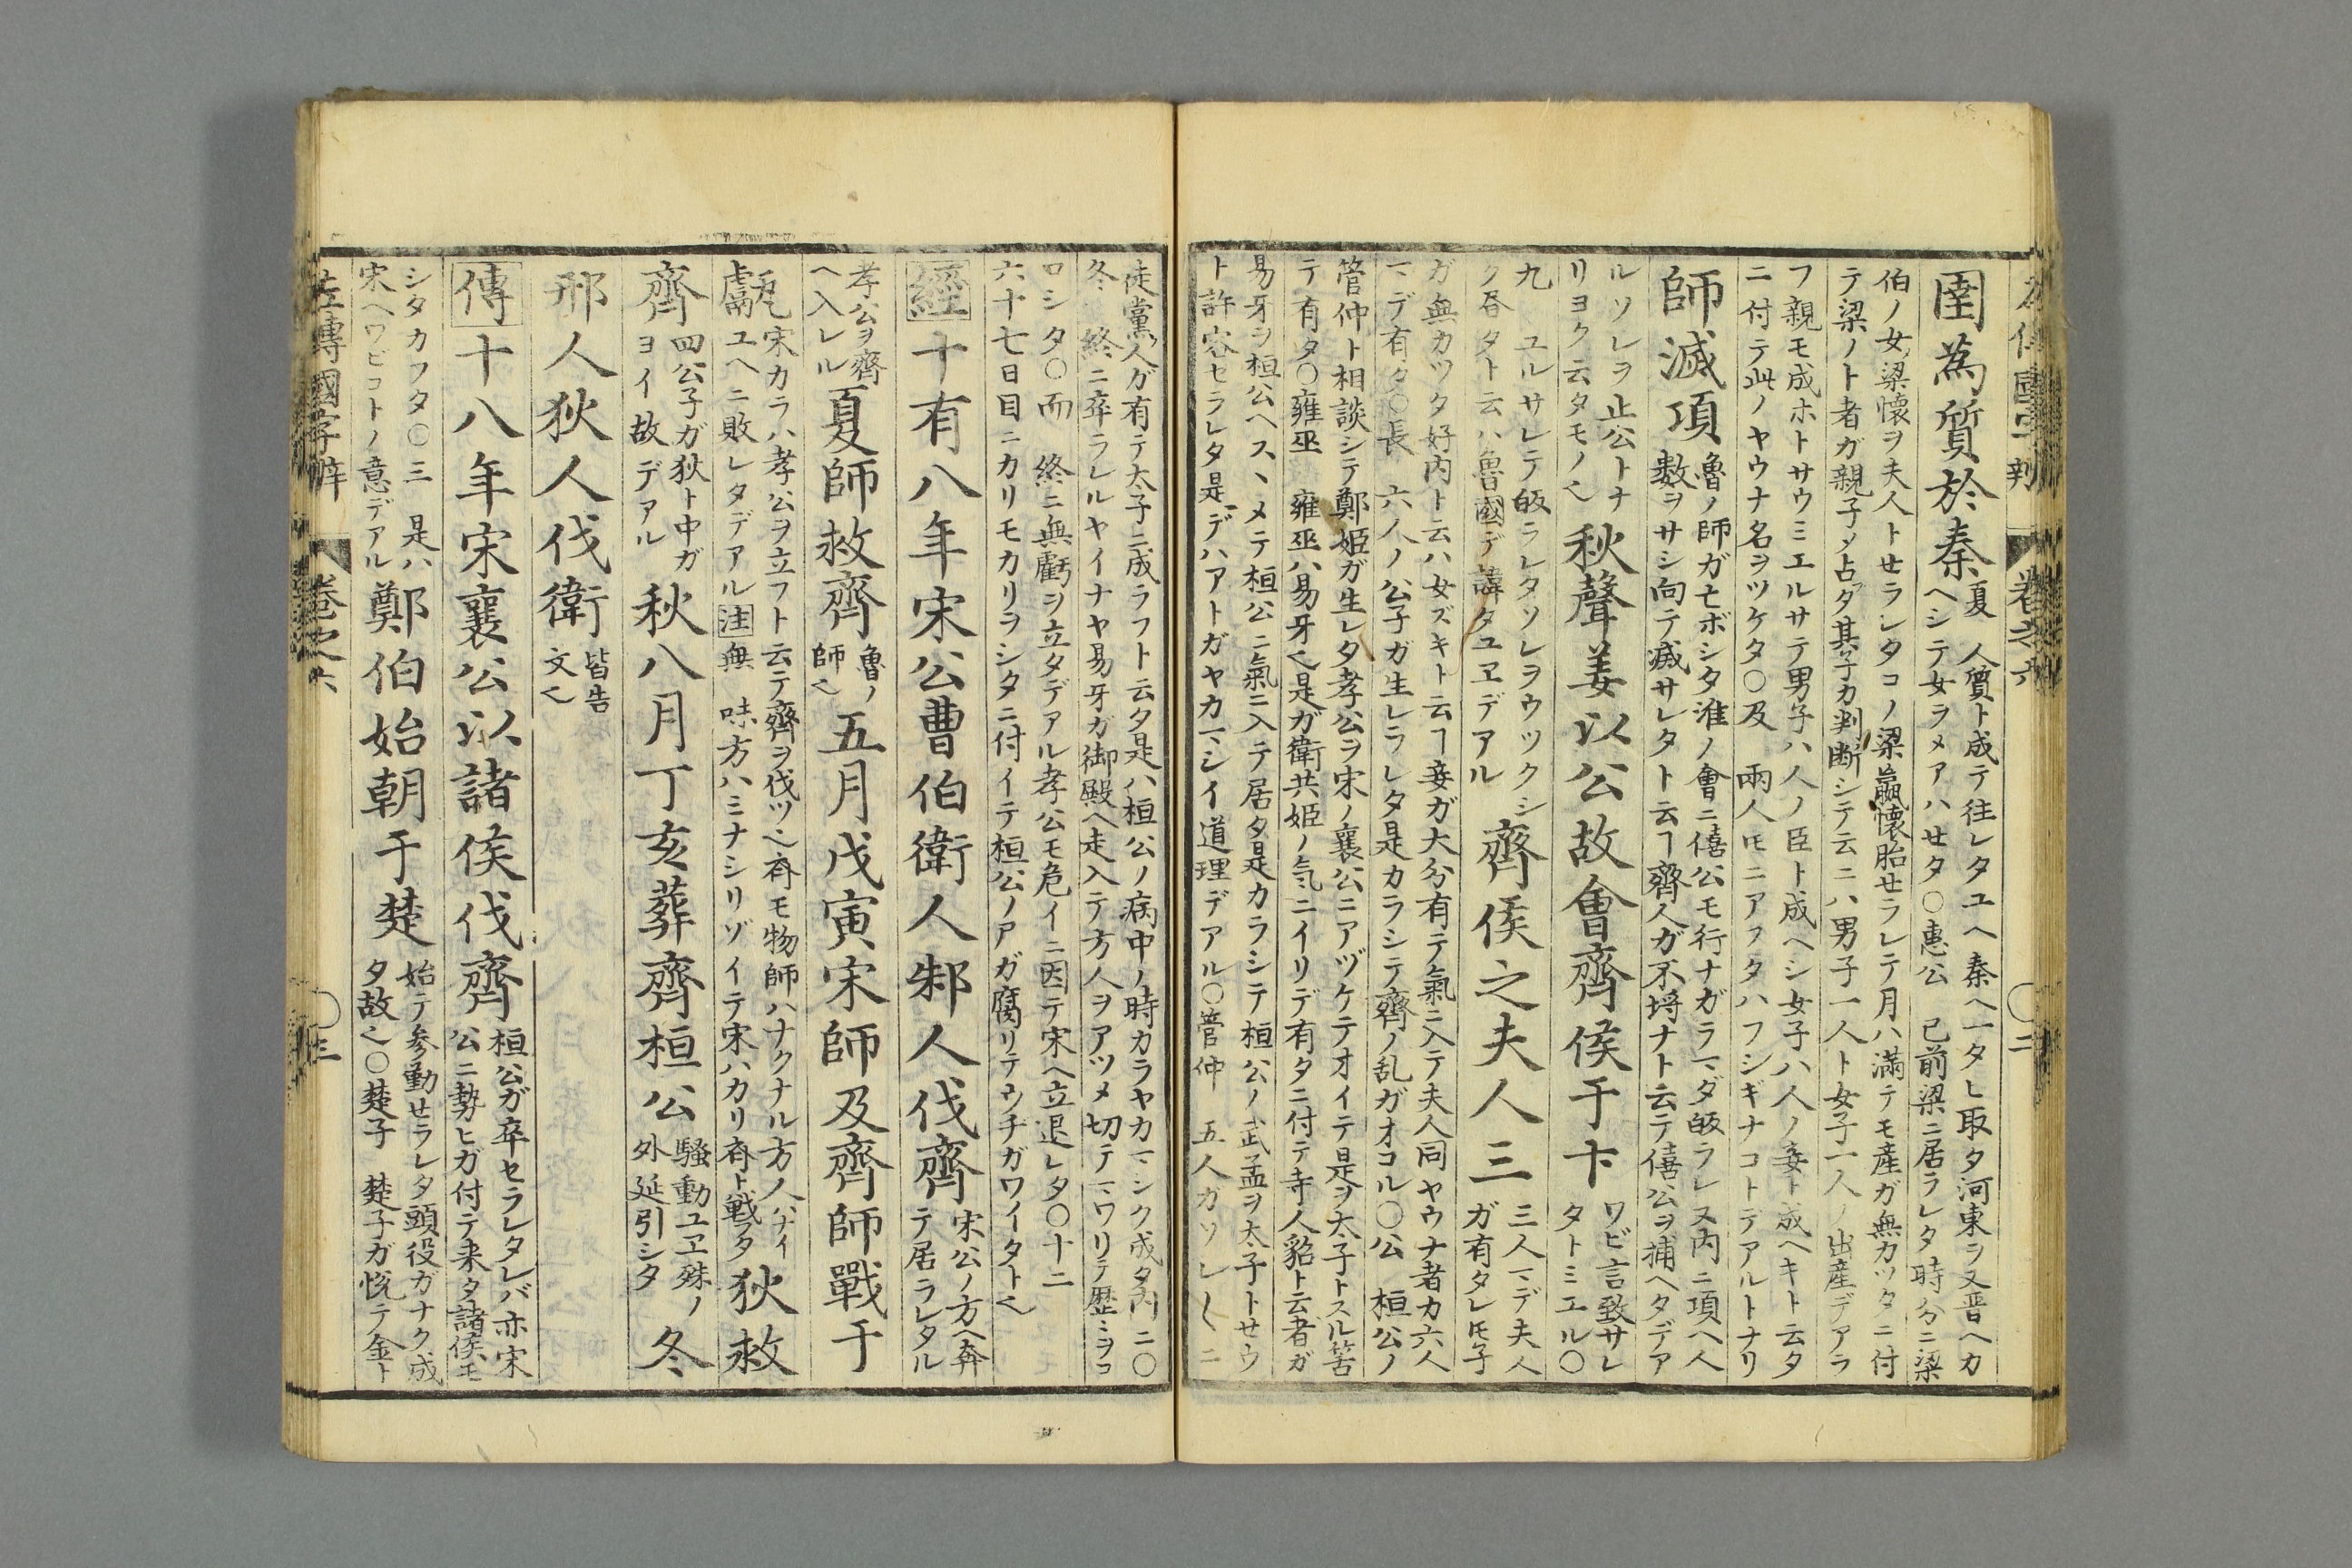 左傳國字辨 卷之六 〇二
圉為質於秦
夏 人質ト成テ往レタユヘ秦ヘ一タヒ取タ河東ヲ又晋ヘカ
ヘシテ女ヲメアハせタ〇惠公 已前梁ニ居ラレタ時分ニ梁
伯ノ女梁懐ヲ夫人トせラレタコノ梁嬴懐胎せラレテ月ハ満テモ産ガ無カツタニ付
テ梁ノト者ガ親子〆占タ其子カ判断シテ云ニハ男子一人ト女子一人ノ出産デアラ
フ親モ成ホトサウミエルサテ男子ハ人ノ臣ト成ヘシ女子ハ人ノ妾ト成ヘキト云タ
ニ付テ此ノヤウナ名ヲツケタ〇及 兩人𪜈ニアフタハフシギナコトデアルトナリ
師滅項
魯ノ師ガ亡ボシタ淮ノ會ニ僖公モ行ナガラマダ皈ラレヌ内ニ項ヘ人
数ヲサシ向テ滅サレタト云ヿ齊人ガ不埒ナト云テ僖公ヲ捕ヘタデア
ルソレヲ止公トナ
リヨク云タモノ也
秋聲姜以公故會齊侯于卞
ワビ言致サレ
タトミエル〇
九 ユルサレテ皈ラレタソレヲウツクシ
ク昏タト云ハ魯國デ諱タユヱデアル
齊侯之夫人三
三人マデ夫人
ガ有タレ𪜈子
ガ無カツタ好内ト云ハ女ズキト云ヿ妾ガ大分有テ氣ニ入テ夫人同ヤウナ者カ六人
マデ有タ〇長 六人ノ公子ガ生レラレタ是カラシテ齊ノ乱ガオコル〇公 桓公ノ
管仲ト相談シテ鄭姫ガ生レタ孝公ヲ宋ノ襄公ニアヅケテオイテ是ヲ太子トスル筈
テ有タ〇雍巫 雍巫ハ易牙也是ガ衛共姫ノ気ニイリデ有タニ付テ寺人貂ト云者ガ
易牙ヲ桓公ヘスヽメテ桓公ニ氣ニ入テ居タ是カラシテ桓公ノ武孟ヲ太子トせウ
ト許容セラレタ是デハアトガヤカマシイ道理デアル〇管仲 五人ガソレ〱ニ
徒黨人ガ有テ太子ニ成ラフト云タ是ハ桓公ノ病中ノ時カラヤカマシク成タ内ニ〇
冬 終ニ卒ラレルヤイナヤ易牙ガ御殿ヘ走入テ方人ヲアツメ切テマワリテ歴〻ヲコ
ロシタ〇而 終ニ無虧ヲ立タデアル孝公モ危イニ因テ宋ヘ立退レタ〇十二
六十七日目ニカリモカリヲシタニ付イテ桓公ノアガ腐リテウチガワイタト也
經十有八年宋公曹伯衛人邾人伐齊
宋公ノ方ヘ奔
テ居ラレタル
孝公ヲ齊
ヘ入レル
夏師救齊
魯ノ
師也
五月戊寅宋師及齊師戰于
甗
宋カラハ孝公ヲ立フト云テ齊ヲ伐ツ也斉モ物師ハナクナル方人ハナイ
ユヘニ敗レタデアル注無 味方ハミナシリゾイテ宋ハカリ斉ト戦フタ
狄救
齊
四公子ガ狄ト中ガ
ヨイ故デアル
秋八月丁亥葬齊桓公
騒動ユヱ殊ノ
外延引シタ
冬
邢人狄人伐衛
皆告
文也
傳十八年宋襄公以諸侯伐齊
桓公ガ卒セラレタレバ亦宋
公ニ勢ヒガ付テ来タ諸侯モ
シタカフタ〇三 是ハ
宋ヘワビコトノ意デアル
鄭伯始朝于楚
始テ参勤せラレタ頭役ガナク成
タ故也〇楚子 楚子ガ悦テ金ト
左傳國字辨 卷之六 〇三